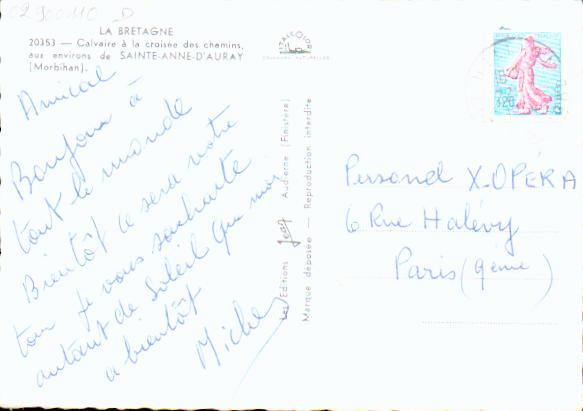 02900110_D
LA BRETAGNE
20353 — Calvaire à la croisée des chemins,
aux environs de SAINTE-ANNE-D'AURAY
(Morbihan).
Amical
Bonjour à
tout le monde
Bientôt ce sera votre
tour je vous souhaite
autant de Soleil que moi
a bientôt
Michel
Les Editions Jean Audierne (Finistère)
Marque déposée — Reproduction interdite
COULEURS NATURELLES
0,20
Personel X-OPÉRA
6 Rue Halévy
Paris (9ème)